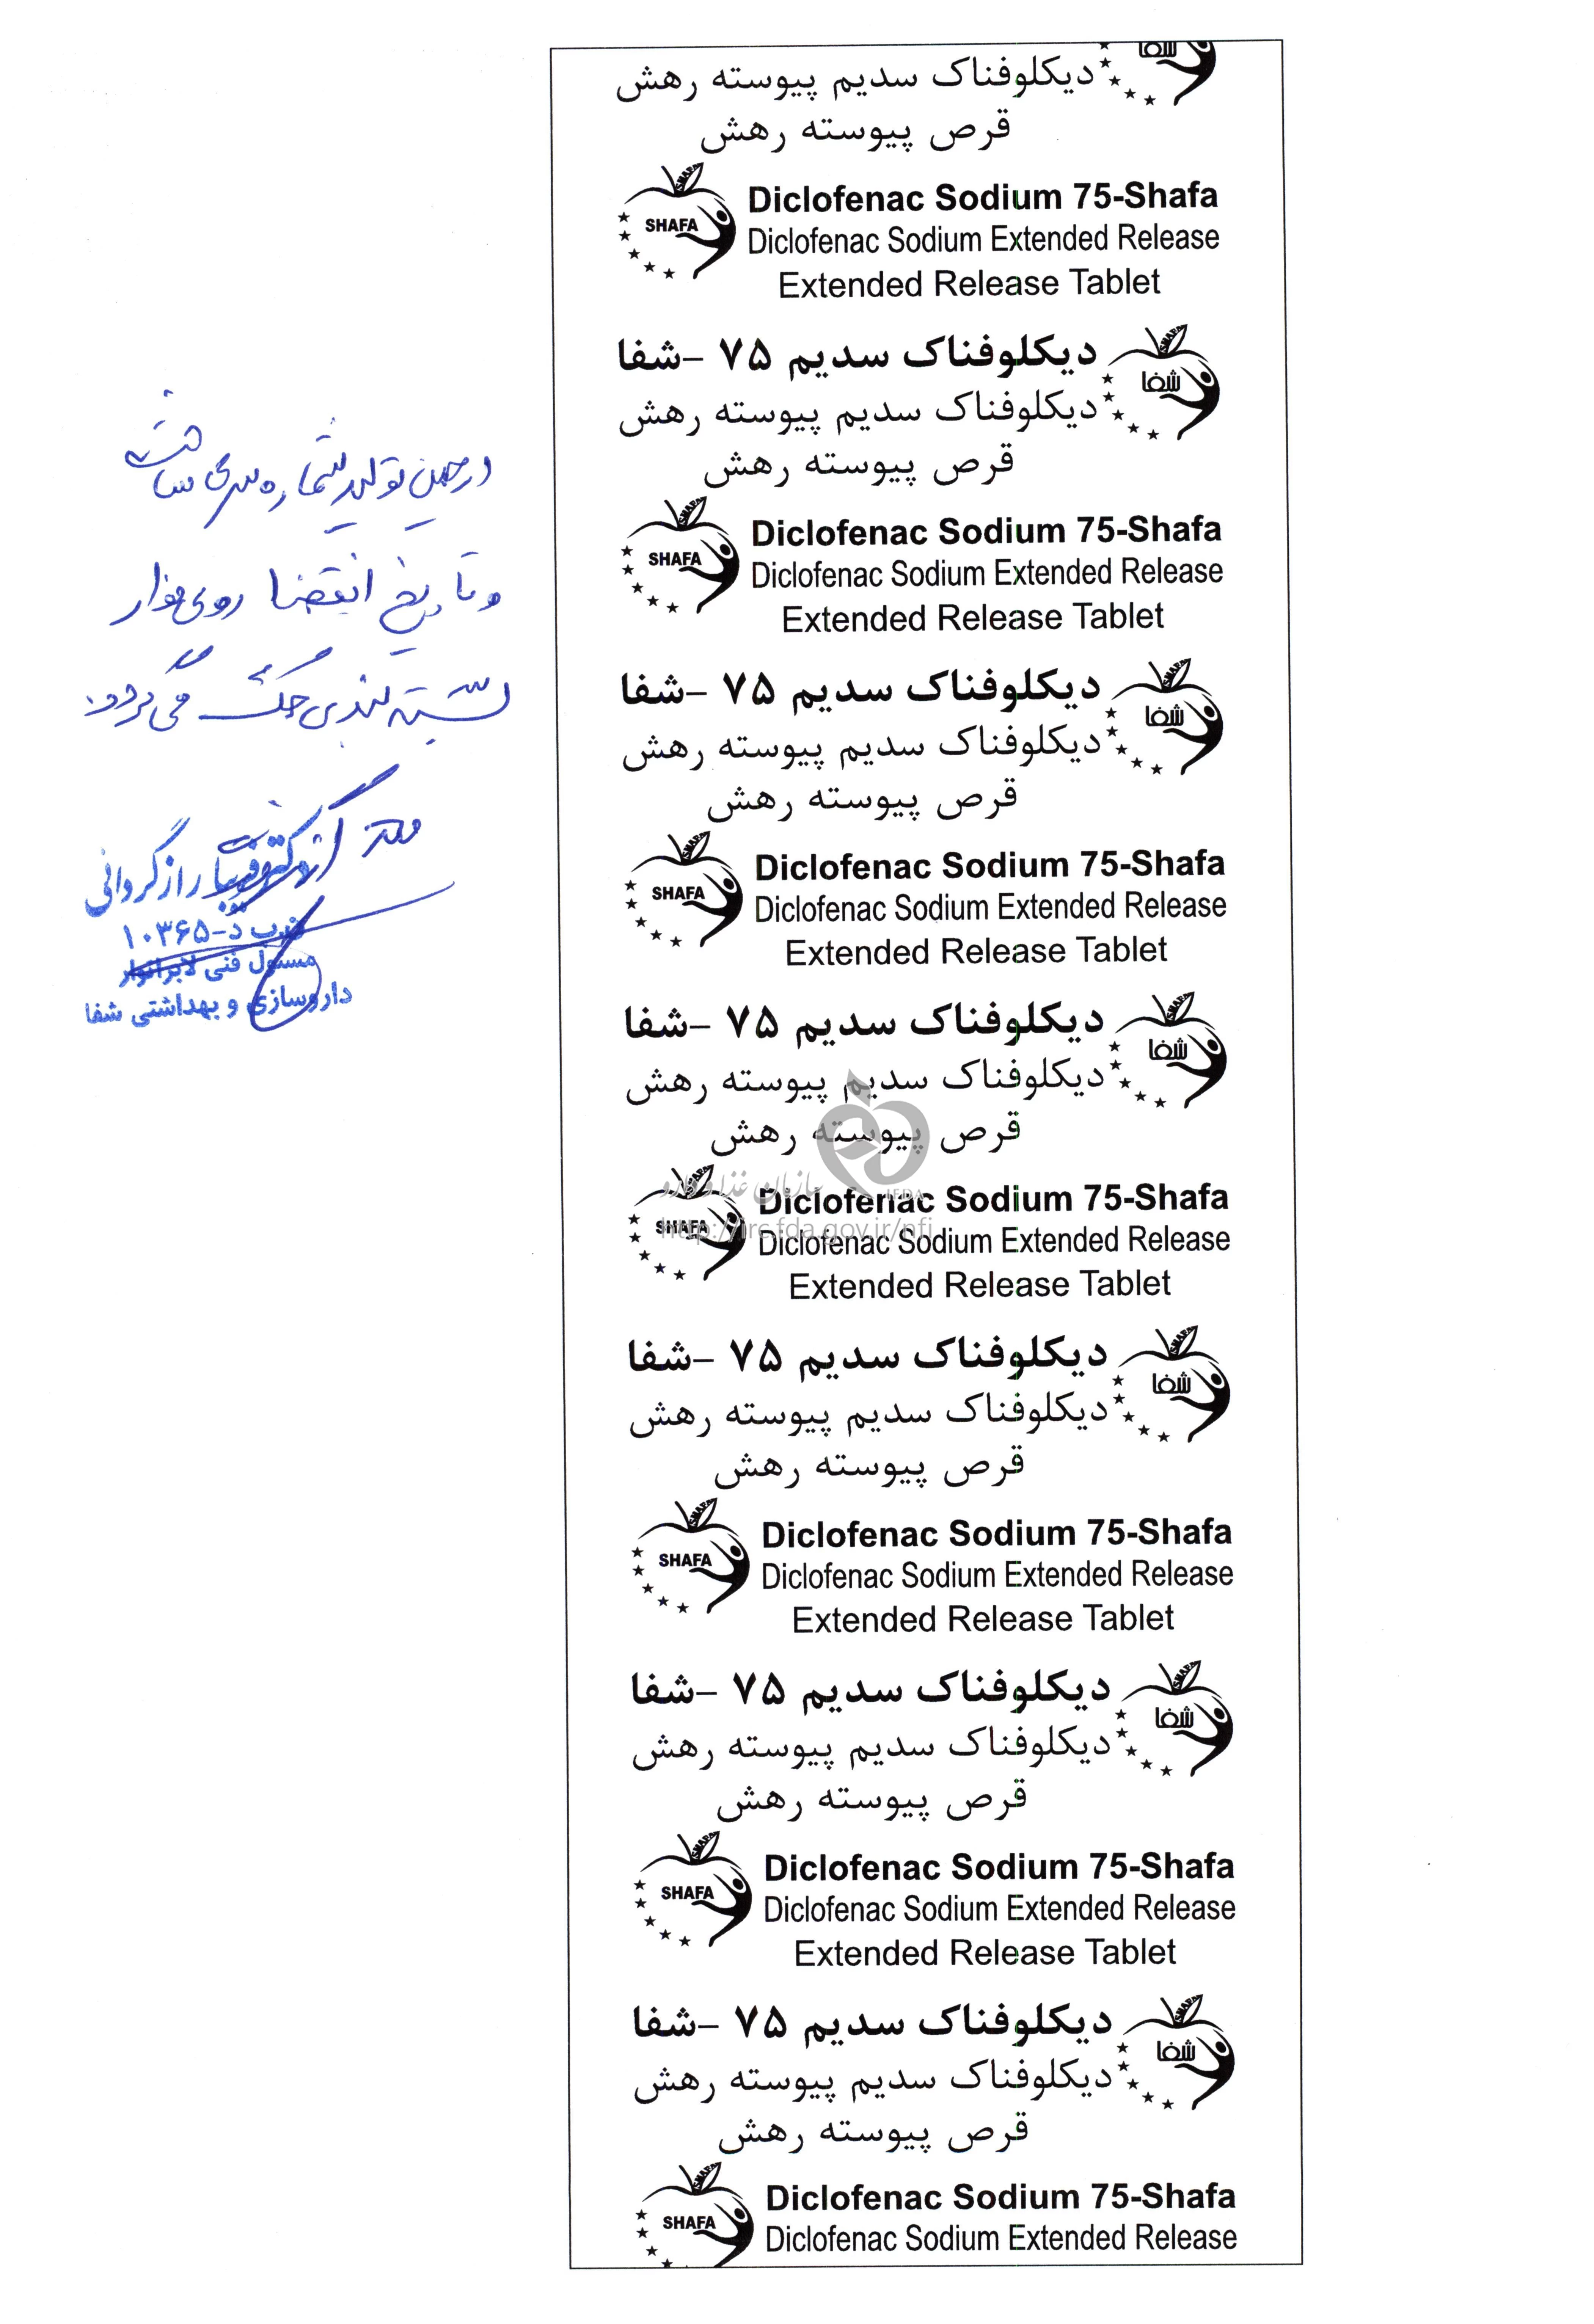 در حین تولید شماره سری ساخت
و تاریخ انقضا روی نوار
بسته بندی حک می گردد.
راز گردانی
۱۰۳۶۵-د
مسئول فنی لابراتوار
داروسازی و بهداشتی شفا
شفا
دیکلوفناک سدیم پیوسته رهش
قرص پیوسته رهش
SHAFA
SHAFA
Diclofenac Sodium 75-Shafa
Diclofenac Sodium Extended Release
Extended Release Tablet
SHAFA
دیکلوفناک سدیم ۷۵ –شفا
شفا
دیکلوفناک سدیم پیوسته رهش
قرص پیوسته رهش
SHAFA
SHAFA
Diclofenac Sodium 75-Shafa
Diclofenac Sodium Extended Release
Extended Release Tablet
SHAFA
دیکلوفناک سدیم ۷۵ –شفا
شفا
دیکلوفناک سدیم پیوسته رهش
قرص پیوسته رهش
SHAFA
SHAFA
Diclofenac Sodium 75-Shafa
Diclofenac Sodium Extended Release
Extended Release Tablet
SHAFA
دیکلوفناک سدیم ۷۵ –شفا
شفا
دیکلوفناک سدیم پیوسته رهش
قرص پیوسته رهش
سازمان غذا و دارو
IFDA
http://irc.fda.gov.ir/nfi
SHAFA
SHAFA
Diclofenac Sodium 75-Shafa
Diclofenac Sodium Extended Release
Extended Release Tablet
SHAFA
دیکلوفناک سدیم ۷۵ –شفا
شفا
دیکلوفناک سدیم پیوسته رهش
قرص پیوسته رهش
SHAFA
SHAFA
Diclofenac Sodium 75-Shafa
Diclofenac Sodium Extended Release
Extended Release Tablet
SHAFA
دیکلوفناک سدیم ۷۵ –شفا
شفا
دیکلوفناک سدیم پیوسته رهش
قرص پیوسته رهش
SHAFA
SHAFA
Diclofenac Sodium 75-Shafa
Diclofenac Sodium Extended Release
Extended Release Tablet
SHAFA
دیکلوفناک سدیم ۷۵ –شفا
شفا
دیکلوفناک سدیم پیوسته رهش
قرص پیوسته رهش
SHAFA
SHAFA
Diclofenac Sodium 75-Shafa
Diclofenac Sodium Extended Release